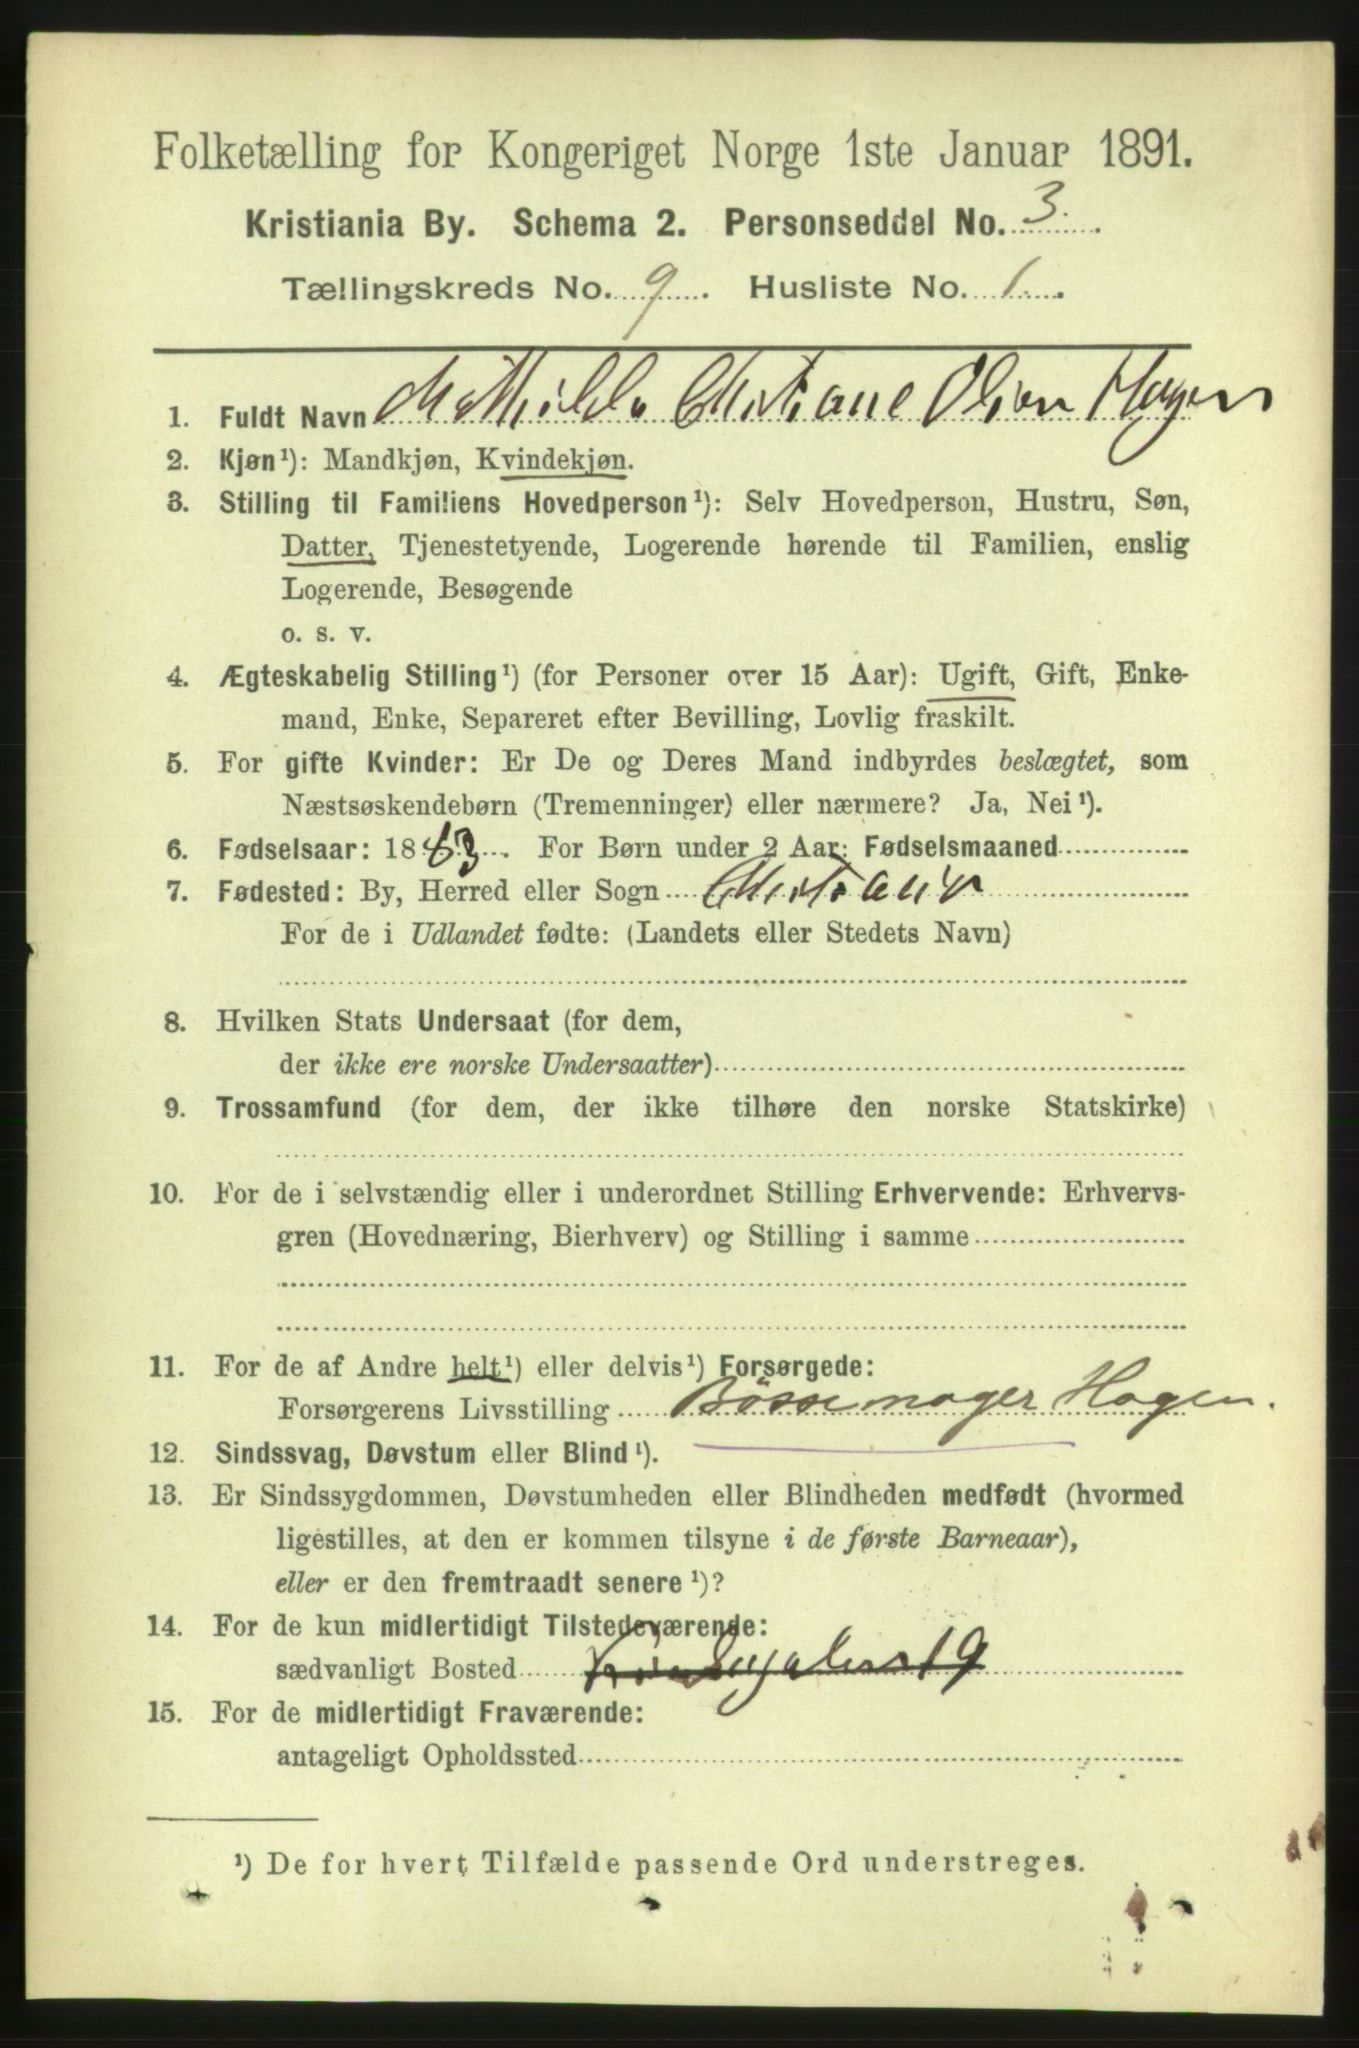 Folketælling for Kongeriget Norge 1ste Januar 1891.
Kristiania By. Schema 2. Personseddel No. 3.
Tællingskreds No. 9. Husliste No. 1.
1. Fuldt Navn Mathilde Christiane Olsen Hagen
2. Kjøn¹): Mandkjøn, Kvindekjøn.
3. Stilling til Familiens Hovedperson¹): Selv Hovedperson, Hustru, Søn,
Datter, Tjenestetyende, Logerende hørende til Familien, enslig
Logerende, Besøgende
o. s. v.
4. Ægteskabelig Stilling¹) (for Personer over 15 Aar): Ugift, Gift, Enke-
mand, Enke, Separeret efter Bevilling, Lovlig fraskilt.
5. For gifte Kvinder: Er De og Deres Mand indbyrdes beslægtet, som
Næstsøskendebørn (Tremenninger) eller nærmere? Ja, Nei¹).
6. Fødselsaar: 1863. For Børn under 2 Aar: Fødselsmaaned
7. Fødested: By, Herred eller Sogn Christiania
For de i Udlandet fødte: (Landets eller Stedets Navn)
8. Hvilken Stats Undersaat (for dem,
der ikke ere norske Undersaatter)
9. Trossamfund (for dem, der ikke tilhøre den norske Statskirke)
10. For de i selvstændig eller i underordnet Stilling Erhvervende: Erhvervs-
gren (Hovednæring, Bierhverv) og Stilling i samme
11. For de af Andre helt¹) eller delvis¹) Forsørgede:
Forsørgerens Livsstilling Bøssemager Hagen.
12. Sindssvag, Døvstum eller Blind¹).
13. Er Sindssygdommen, Døvstumheden eller Blindheden medfødt (hvormed
ligestilles, at den er kommen tilsyne i de første Barneaar),
eller er den fremtraadt senere¹)?
14. For de kun midlertidigt Tilstedeværende:
sædvanligt Bosted
15. For de midlertidigt Fraværende:
antageligt Opholdssted
¹) De for hvert Tilfælde passende Ord understreges.